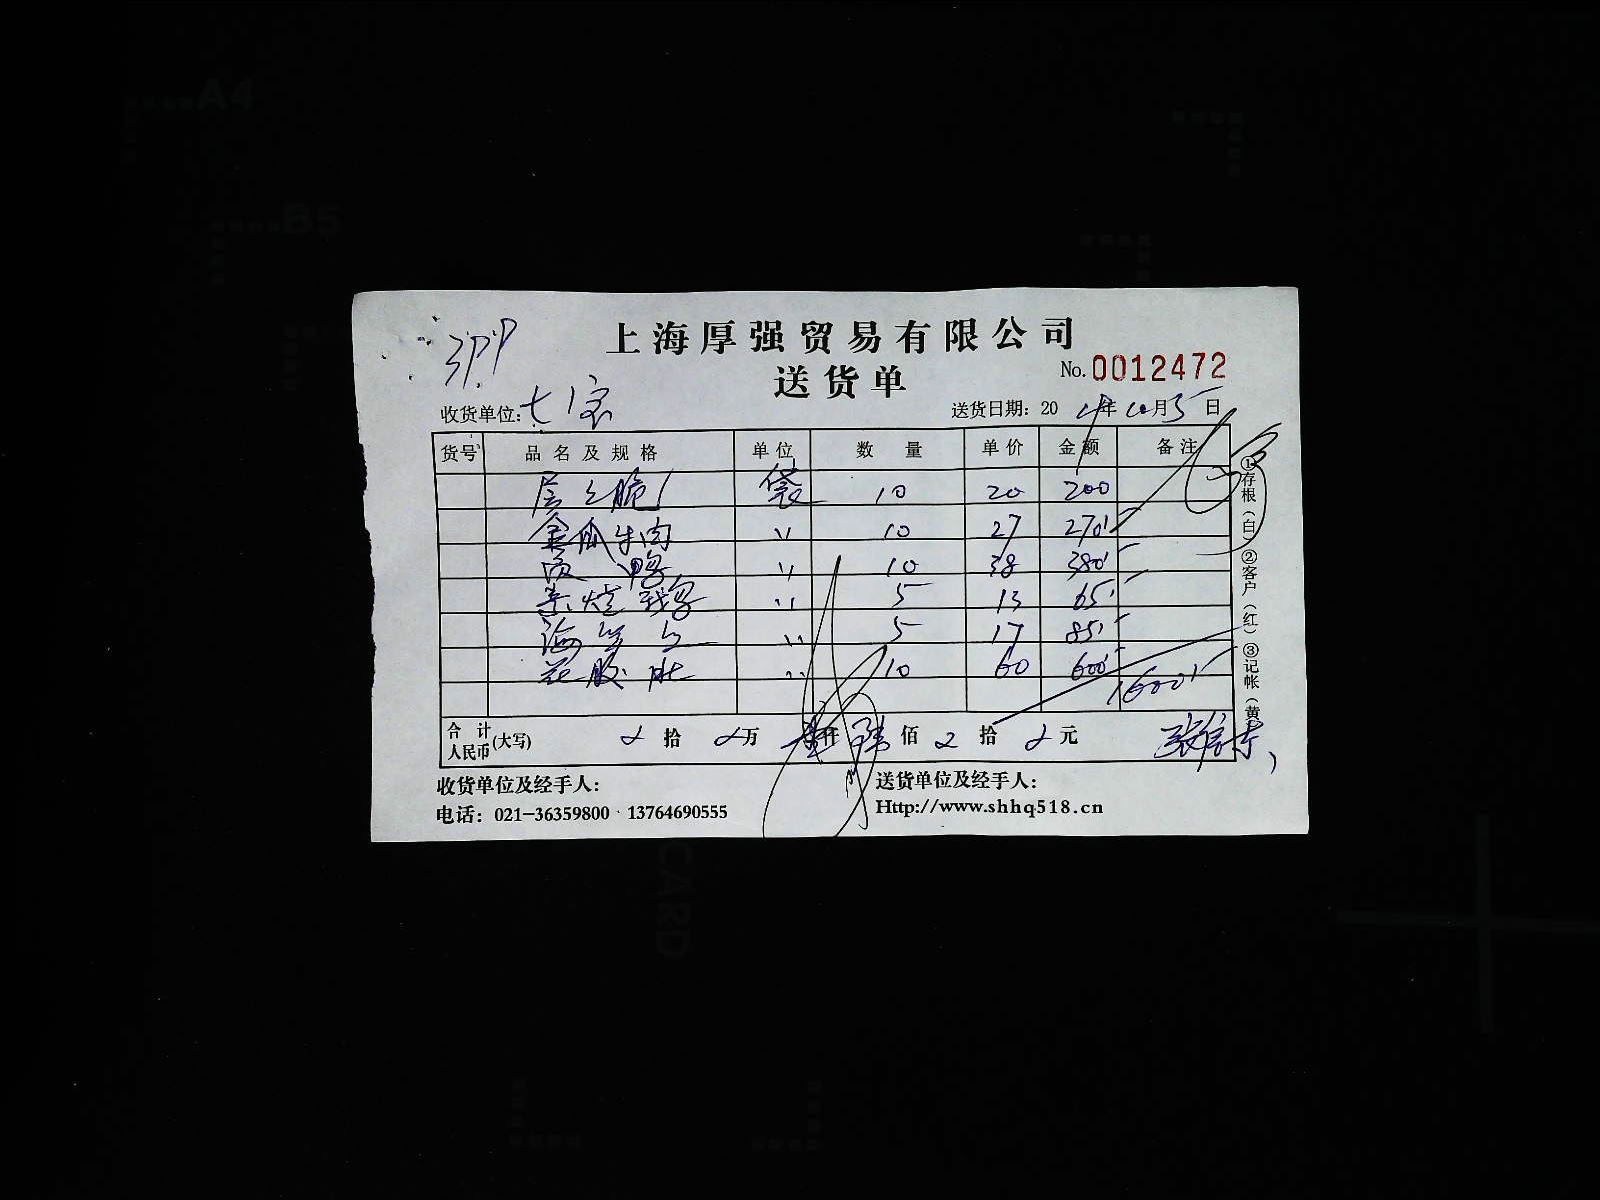 A4
B5
上海厚强贸易有限公司
送货单
No.0012472
收货单位:七宝
送货日期: 20 年10月5日
货号 品名及规格 单位 数量 单价 金额 备注
层之脆 袋 10 20 200
金瓜牛肉 〃 10 27 270
鸭 〃 10 38 380
〃 5 13 65
海 〃 5 17 85
花胶 〃 10 60 600
1600
合计人民币(大写) 拾 万 壹仟 陆佰 拾 元
收货单位及经手人:
送货单位及经手人:
电话: 021-36359800 13764690555
Http://www.shhq518.cn
①存根(白)②客户(红)③记帐(黄
CARD